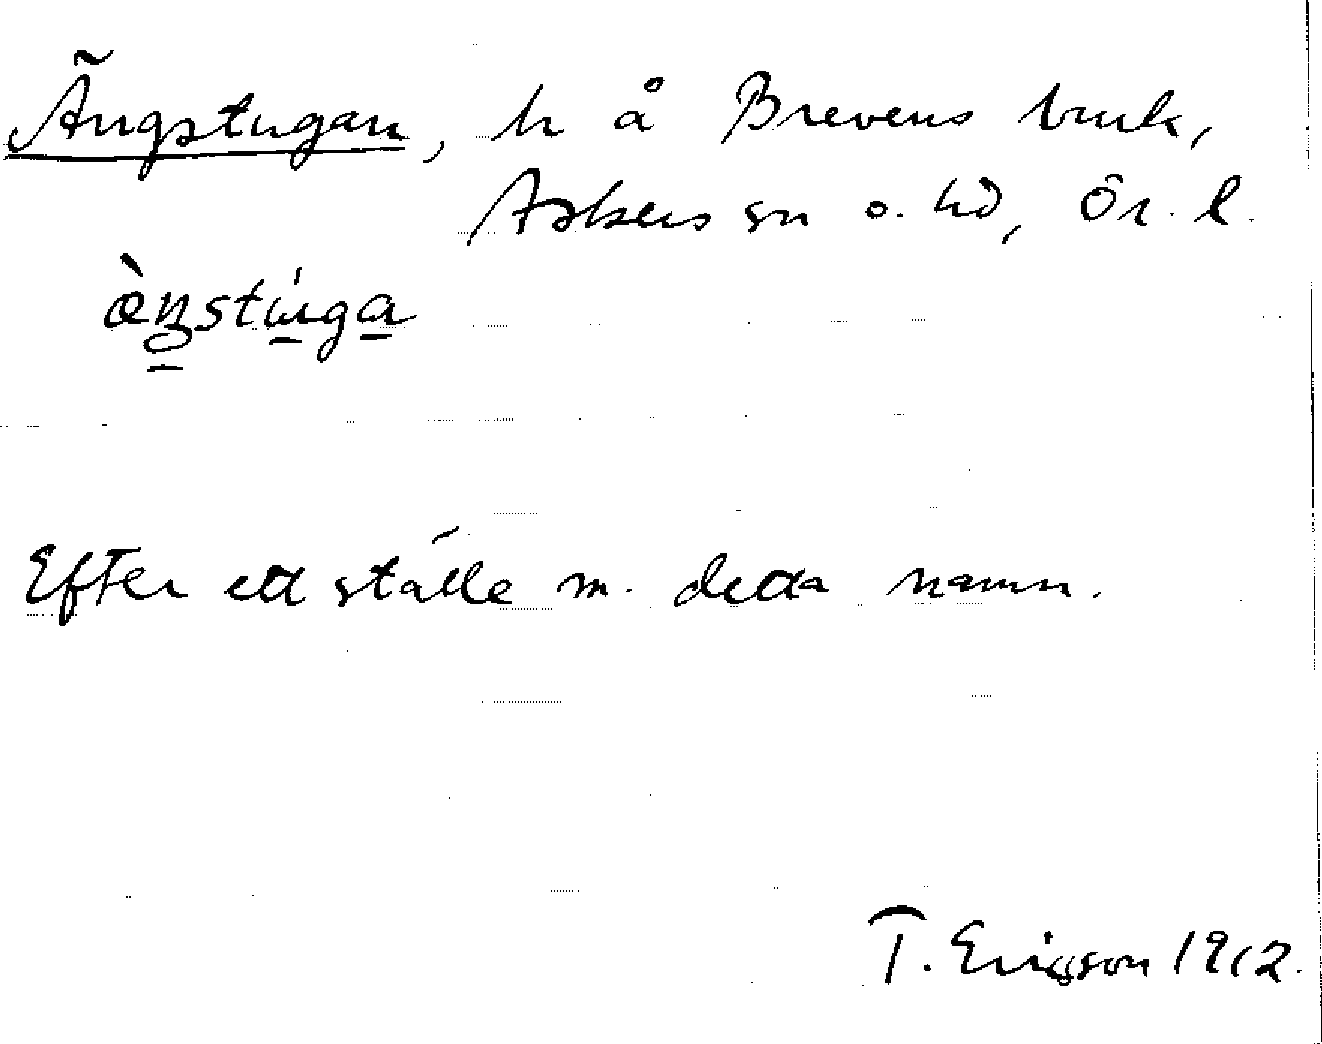 Ängstugan, h å Brevens bruk,
Askers sn o. hd, Ör. l.
æ̀ŋstu̇ga
Efter ett ställe m. detta namn.
T. Ericsson 1912.